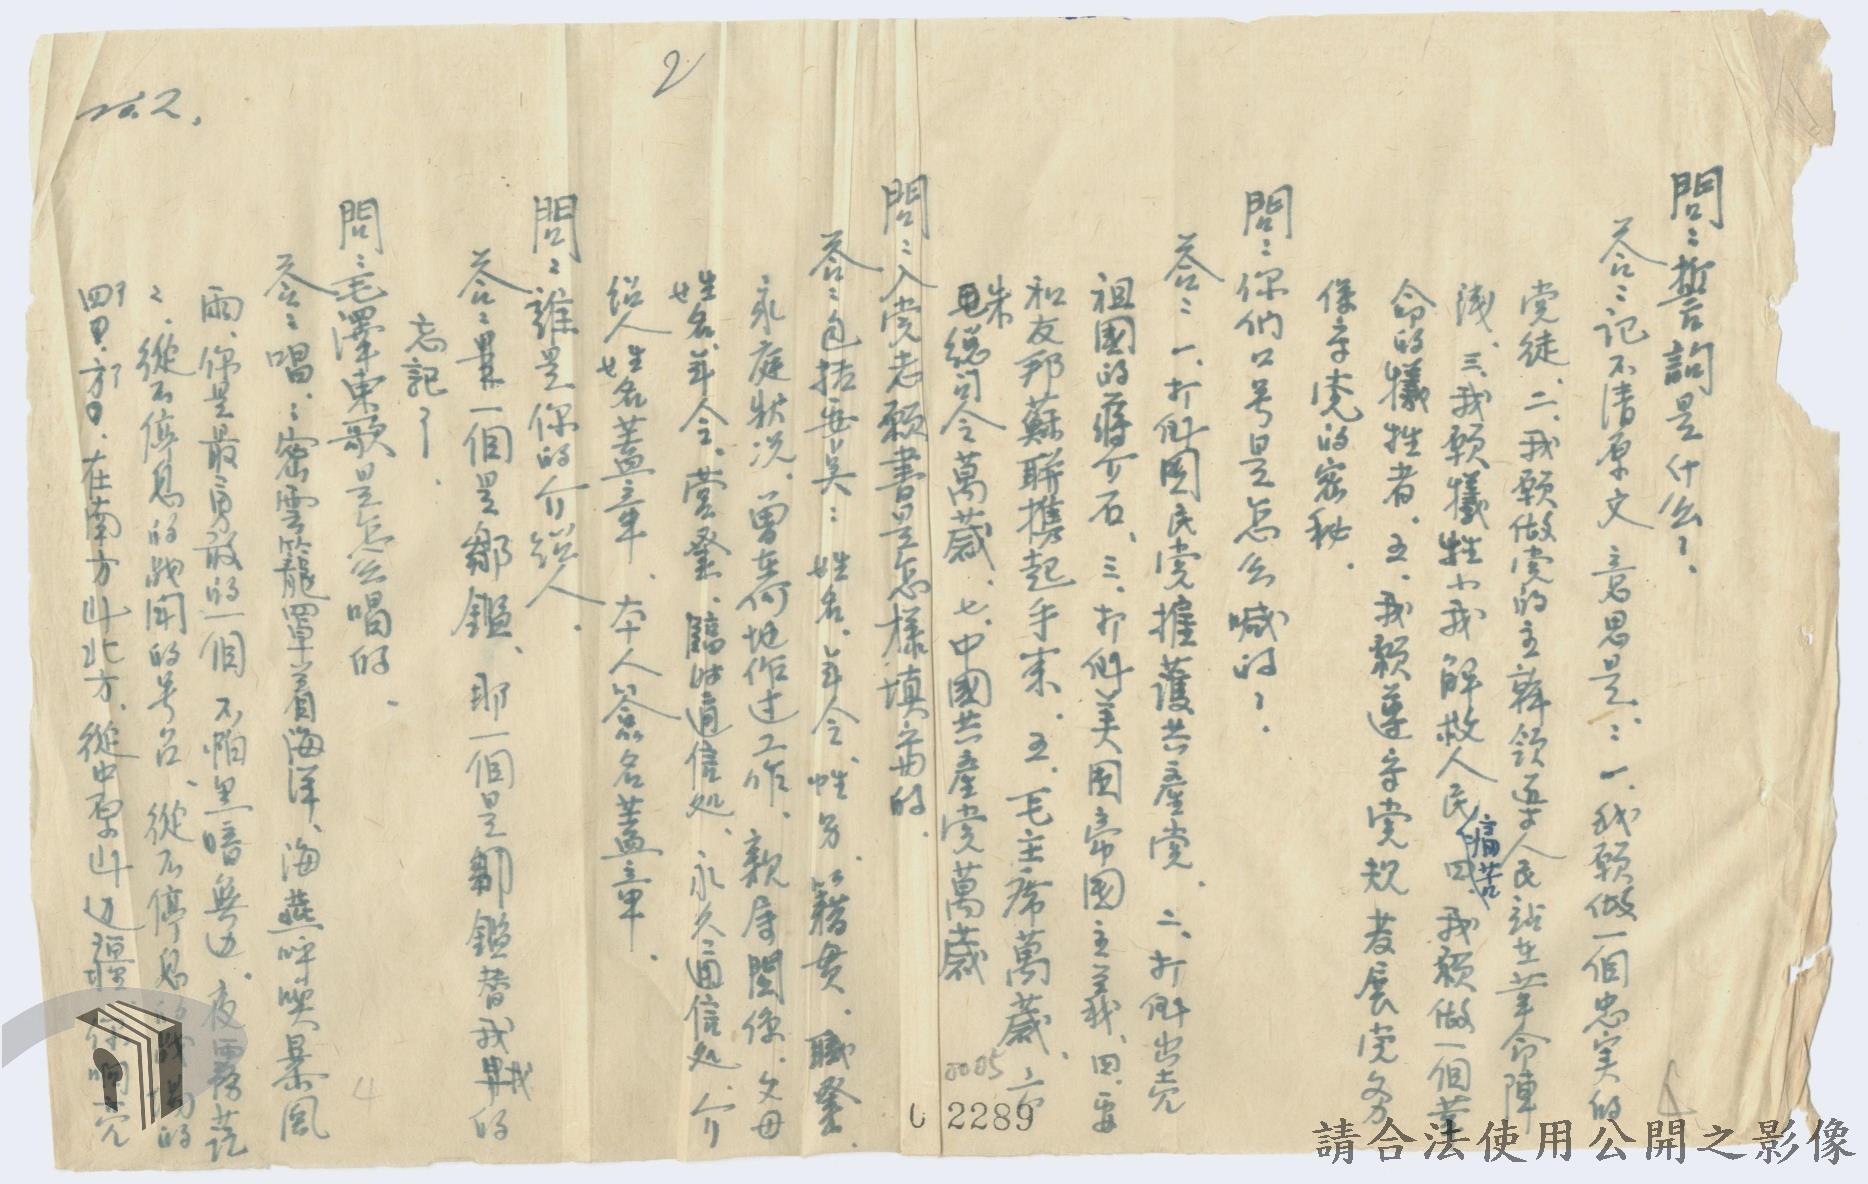 2
No.2.
問：誓詞是什么？
答：記不清原文 意思是：一、我願做一個忠实的
党徒、二、我願做党的主幹領導人民站在革命陣
线、三、我願犧牲小我解救人民痛苦 四我願做一個革
命的犧牲者、五、我願遵守党规 发展党务
保守党的密秘、
問：你們口号是怎么喊的？
答：一、打倒国民党擁護共產党、二、打倒出壳
祖國的蔣介石、三、打倒美国帝國主义、四、要
和友邦蘇聯携起手来、五、毛主席萬歲、六
朱總司令萬歲、七、中國共產党萬歲
問：入党志願書是怎樣填寫的、
答：包括要具：姓名、年令、性別、籍貫、職業、
家庭狀况、曾在何地作过工作、親房関係、父母
姓名、年令、营業、臨时通信処、永久通信処、介
绍人姓名蓋章、本人簽名蓋章、
問：誰是你的介紹人、
答：一個是鄒鑑、那一個是鄒鑑替我的
忘記了、
問：毛澤東歌是怎么唱的、
答：唱：密雲籠罩着海洋、海燕呼唤暴風
雨、你是最勇敢的一個 不怕黑暗無边、夜霧茫
〻、從不停息的战闘的号召、從不停息的战場的
四方、在南方北方、從中原边疆、你啊
4
0005
2289
請合法使用公開之影像